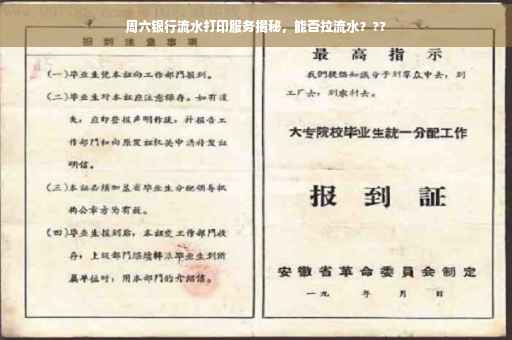 周六银行流水打印服务揭秘，能否拉流水？??
报到注意事项
(一)毕业生凭本证向工作部门报到。
(二)毕业生对本证应注意保存。如有遗
失，应即登报声明作废，并报告工
作部门和向原发证机关申请补发证
明信。
(三)本证必须加盖省毕业生分配领导机
构公章方为有效。
(四)毕业生报到后，本证交工作部门收
存；上级部门
属单位时，用本部门的介绍信。
最高指示
我们提倡知识分子到群众中去，到
工厂去，到农村去。
大专院校毕业生統一分配工作
报到証
安徽省革命委員会制定
一九 年 月 日